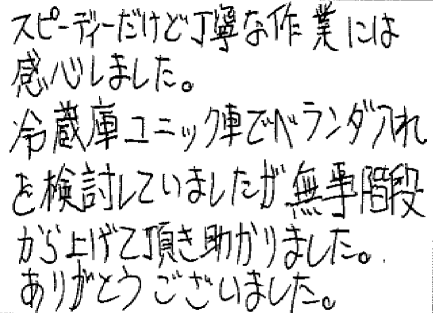 スピーディーだけど丁寧な作業には
感心しました。
冷蔵庫ユニック車でベランダ入れ
を検討していましたが無事階段
から上げて頂き助かりました。
ありがとうございました。